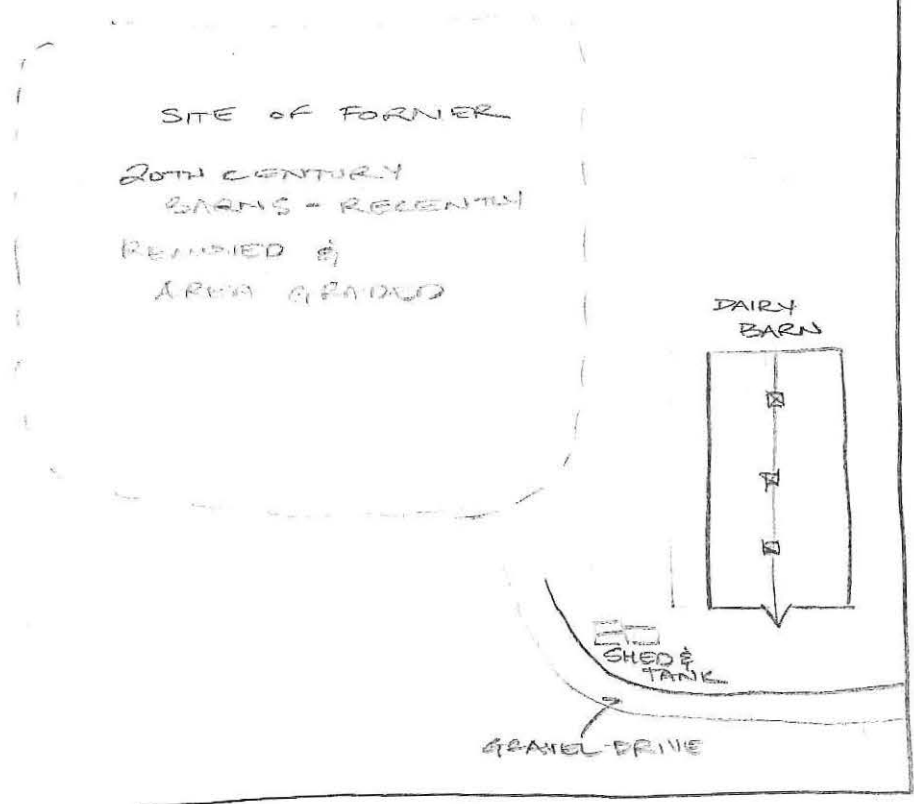 SITE OF FORMER
20TH CENTURY
BARNS - RECENTLY
REMOVED &
AREA GRADED
DAIRY
BARN
SHED &
TANK
GRAVEL DRIVE